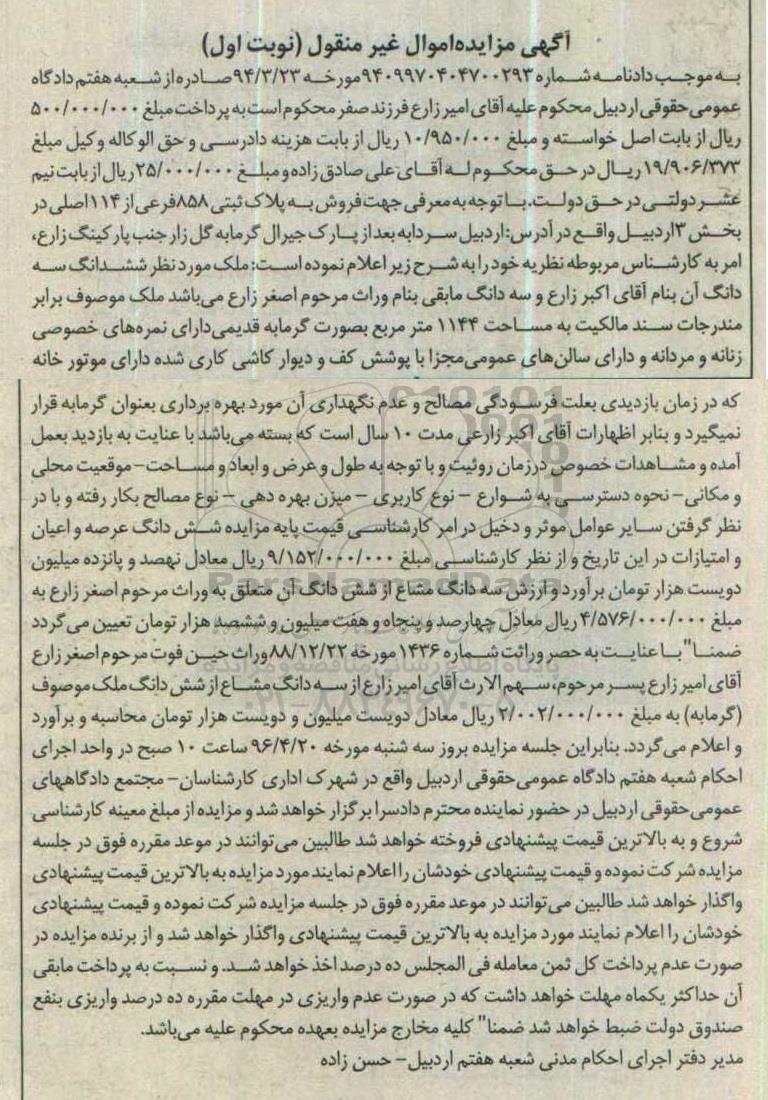 آگهی مزایده‌اموال غیر منقول (نوبت اول)
به موجب دادنامه شماره ۹۴۰۹۹۷۰۴۰۴۷۰۰۲۹۳مورخه ۹۴/۳/۲۳صادره از شعبه هفتم دادگاه
عمومی‌حقوقی اردبیل محکوم علیه آقای امیر زارع فرزند صفر محکوم است به پرداخت مبلغ ۵۰۰/۰۰۰/۰۰۰
ریال از بابت اصل خواسته و مبلغ ۱۰/۹۵۰/۰۰۰ ریال از بابت هزینه دادرسی و حق الوکاله وکیل مبلغ
۱۹/۹۰۶/۳۷۳ ریال در حق محکوم له آقای علی صادق زاده و مبلغ ۲۵/۰۰۰/۰۰۰ریال از بابت نیم
عشر دولتی در حق دولت. با توجه به معرفی جهت فروش به پلاک ثبتی ۸۵۸فرعی از ۱۱۴اصلی در
بخش ۳اردبیل واقع در آدرس: اردبیل سردابه بعد از پارک جیرال گرمابه گل زار جنب پارکینگ زارع،
امر به کارشناس مربوطه نظریه خود را به شرح زیر اعلام نموده است: ملک مورد نظر ششدانگ سه
دانگ آن بنام آقای اکبر زارع و سه دانگ مابقی بنام وراث مرحوم اصغر زارع می‌باشد ملک موصوف برابر
مندرجات سند مالکیت به مساحت ۱۱۴۴ متر مربع بصورت گرمابه قدیمی‌دارای نمره‌های خصوصی
زنانه و مردانه و دارای سالن‌های عمومی‌مجزا با پوشش کف و دیوار کاشی کاری شده دارای موتور خانه
که در زمان بازدیدی بعلت فرسودگی مصالح و عدم نگهداری آن مورد بهره برداری بعنوان گرمابه قرار
نمیگیرد و بنابر اظهارات آقای اکبر زارعی مدت ۱۰ سال است که بسته می‌باشد با عنایت به بازدید بعمل
آمده و مشاهدات خصوص درزمان روئیت و با توجه به طول و عرض و ابعاد و مساحت– موقعیت محلی
و مکانی– نحوه دسترسی به شوارع – نوع کاربری – میزن بهره دهی – نوع مصالح بکار رفته و با در
نظر گرفتن سایر عوامل موثر و دخیل در امر کارشناسی قیمت پایه مزایده شش دانگ عرصه و اعیان
و امتیازات در این تاریخ و از نظر کارشناسی مبلغ ۹/۱۵۲/۰۰۰/۰۰۰ ریال معادل نهصد و پانزده میلیون
دویست هزار تومان برآورد و ارزش سه دانگ مشاع از شش دانگ آن متعلق به وراث مرحوم اصغر زارع به
مبلغ ۴/۵۷۶/۰۰۰/۰۰۰ ریال معادل چهارصد و پنجاه و هفت میلیون و ششصد هزار تومان تعیین می گردد
ضمنا" با عنایت به حصر وراثت شماره ۱۴۳۶ مورخه ۸۸/۱۲/۲۲ وراث حین فوت مرحوم اصغر زارع
آقای امیر زارع پسر مرحوم، سهم الارث آقای امیر زارع از سه دانگ مشاع از شش دانگ ملک موصوف
(گرمابه) به مبلغ ۲/۰۰۲/۰۰۰/۰۰۰ ریال معادل دویست میلیون و دویست هزار تومان محاسبه و برآورد
و اعلام می گردد. بنابراین جلسه مزایده بروز سه شنبه مورخه ۹۶/۴/۲۰ ساعت ۱۰ صبح در واحد اجرای
احکام شعبه هفتم دادگاه عمومی‌حقوقی اردبیل واقع در شهرک اداری کارشناسان– مجتمع دادگاههای
عمومی‌حقوقی اردبیل در حضور نماینده محترم دادسرا برگزار خواهد شد و مزایده از مبلغ معینه کارشناسی
شروع و به بالاترین قیمت پیشنهادی فروخته خواهد شد طالبین می‌توانند در موعد مقرره فوق در جلسه
مزایده شرکت نموده و قیمت پیشنهادی خودشان را اعلام نمایند مورد مزایده به بالاترین قیمت پیشنهادی
واگذار خواهد شد طالبین می‌توانند در موعد مقرره فوق در جلسه مزایده شرکت نموده و قیمت پیشنهادی
خودشان را اعلام نمایند مورد مزایده به بالاترین قیمت پیشنهادی واگذار خواهد شد و از برنده مزایده در
صورت عدم پرداخت کل ثمن معامله فی المجلس ده درصد اخذ خواهد شد. و نسبت به پرداخت مابقی
آن حداکثر یکماه مهلت خواهد داشت که در صورت عدم واریزی در مهلت مقرره ده درصد واریزی بنفع
صندوق دولت ضبط خواهد شد ضمنا" کلیه مخارج مزایده بعهده محکوم علیه می‌باشد.
مدیر دفتر اجرای احکام مدنی شعبه هفتم اردبیل– حسن زاده
ParsNamadData